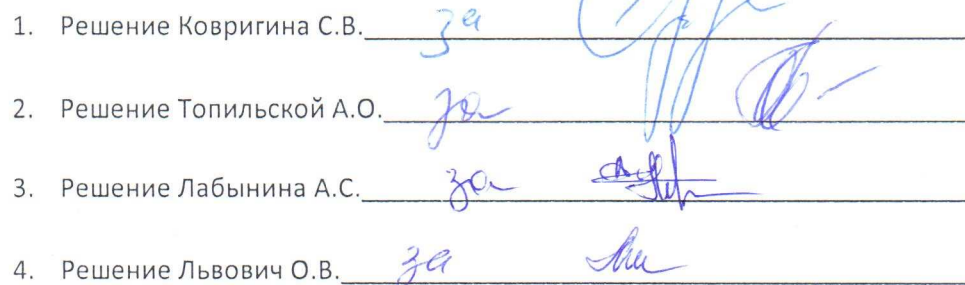 1. Решение Ковригина С.В. за
2. Решение Топильской А.О. за
3. Решение Лабынина А.С. за
4. Решение Львович О.В. за